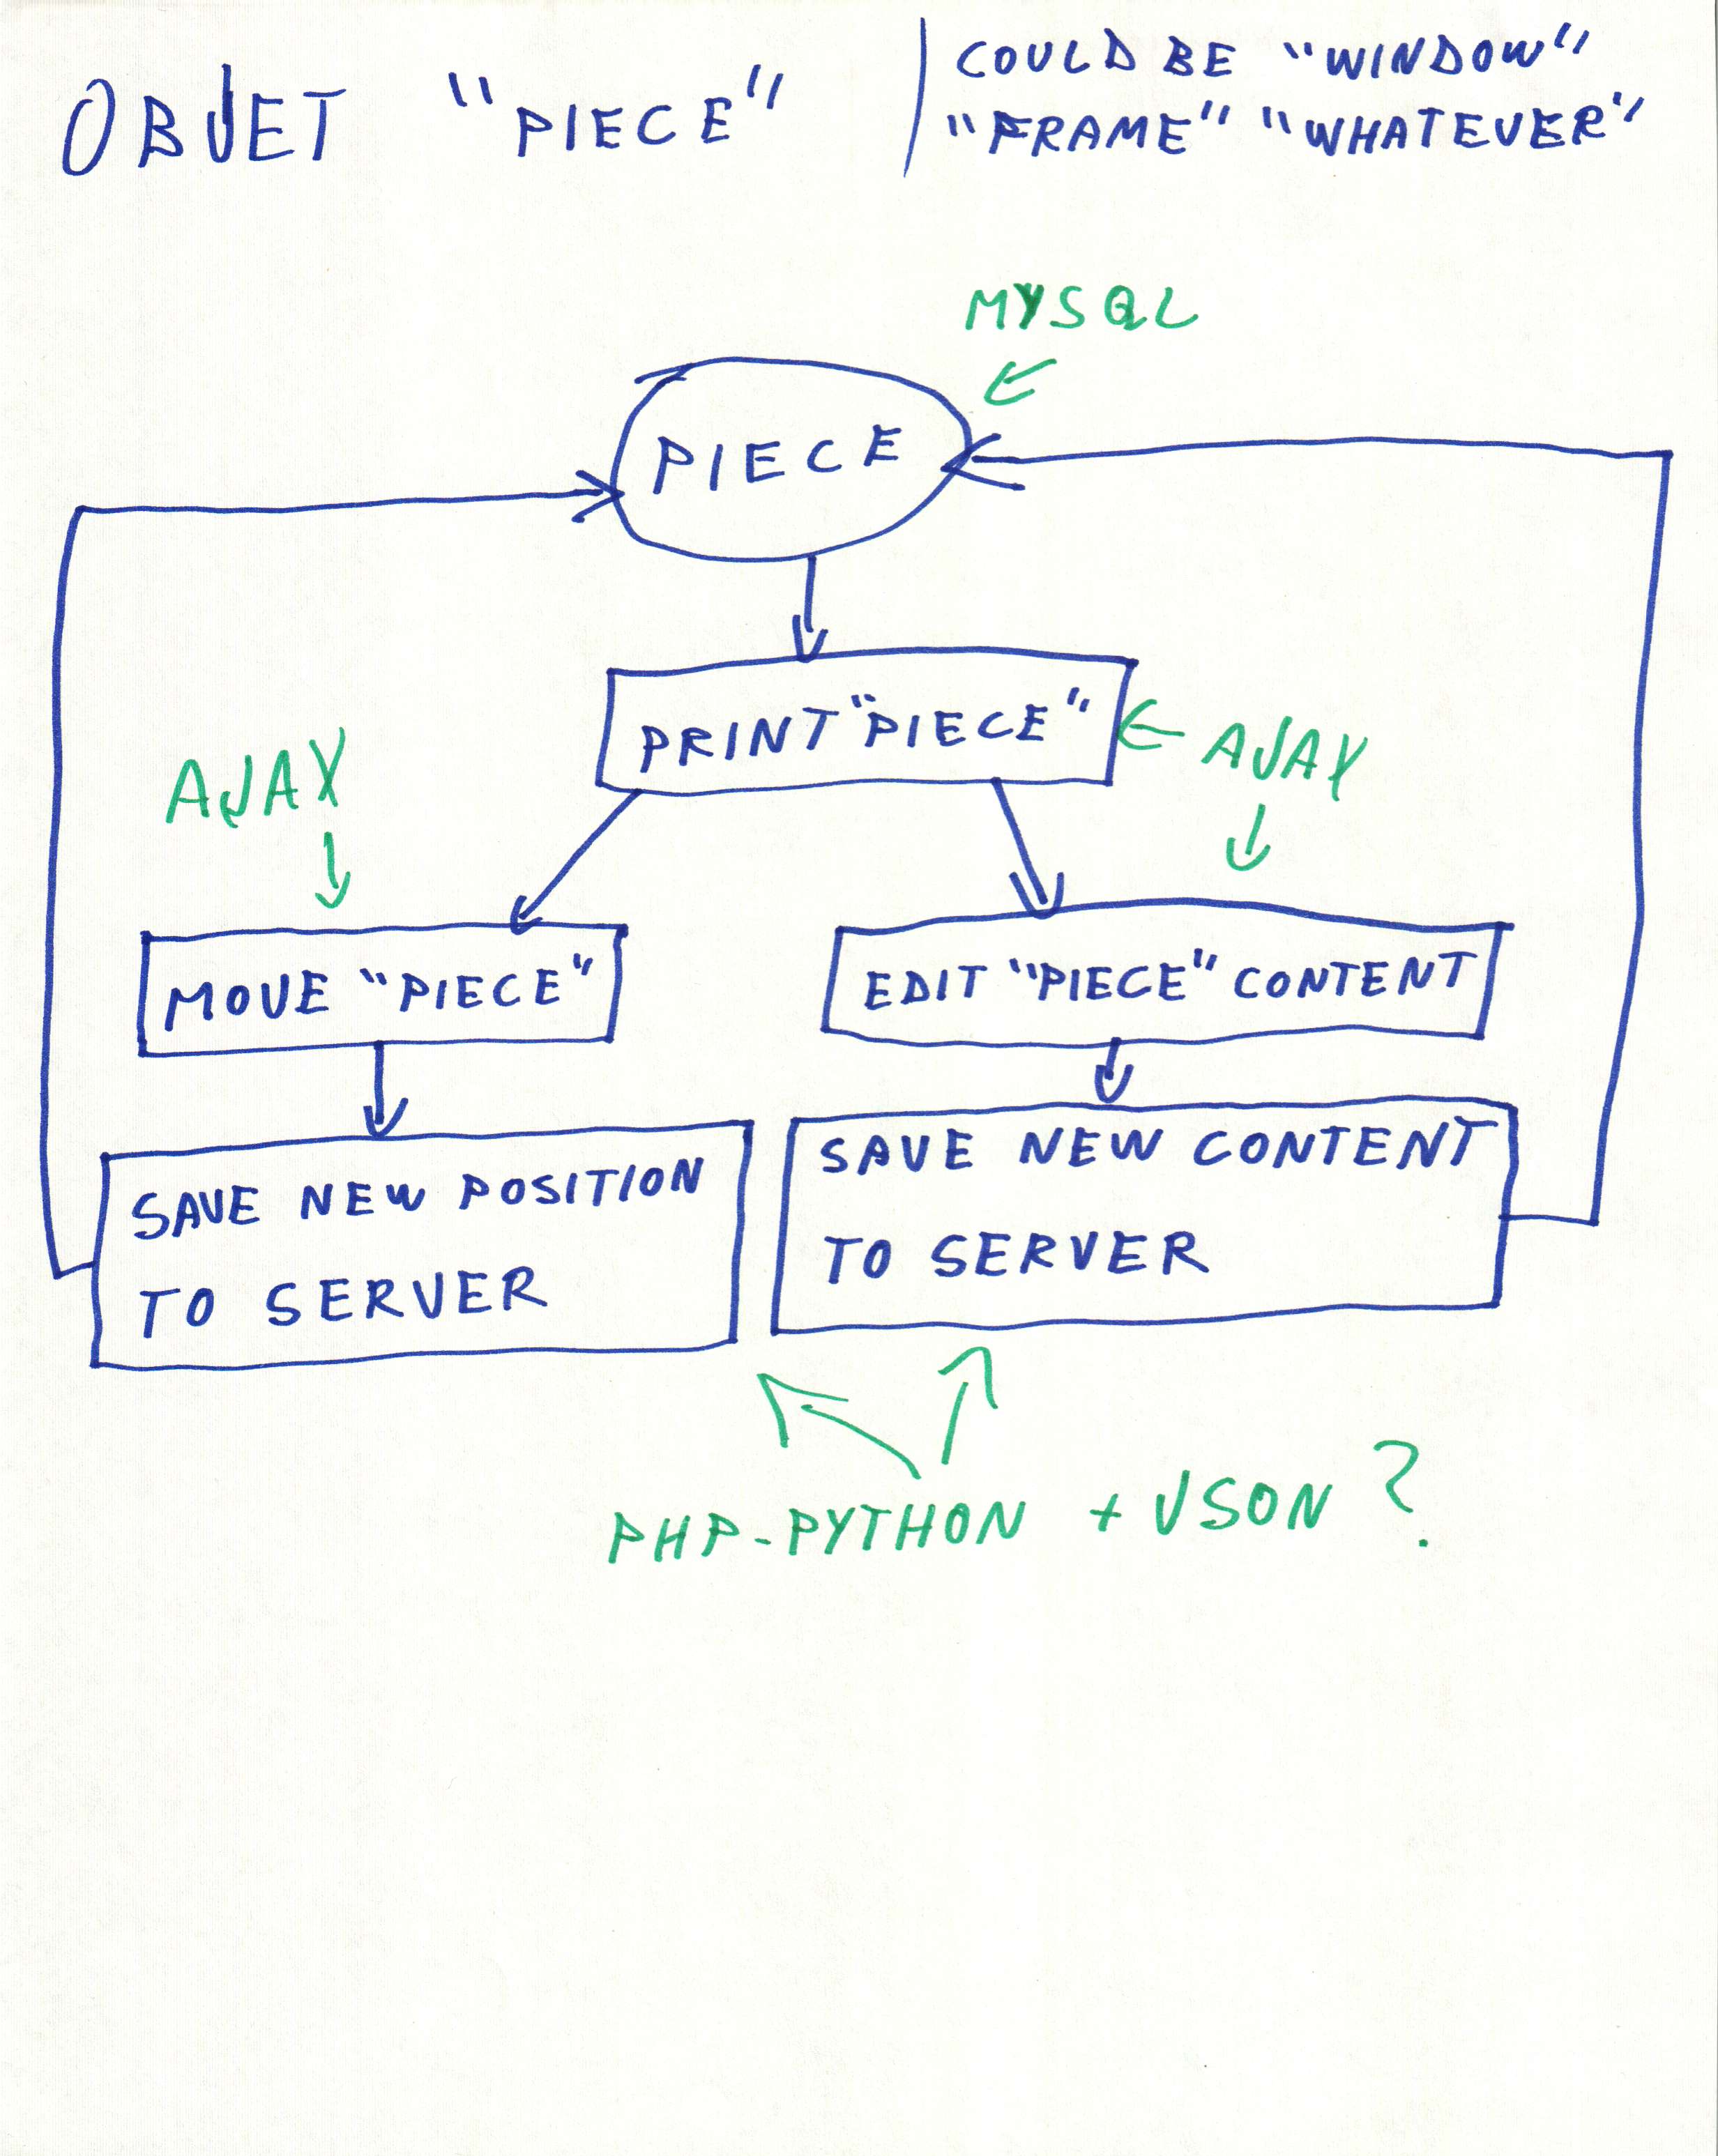 OBJET "PIECE"
COULD BE "WINDOW"
"FRAME" "WHATEVER"
MYSQL
PIECE
PRINT "PIECE"
AJAX
AJAX
MOVE "PIECE"
EDIT "PIECE" CONTENT
SAVE NEW POSITION
TO SERVER
SAVE NEW CONTENT
TO SERVER
PHP-PYTHON + JSON ?